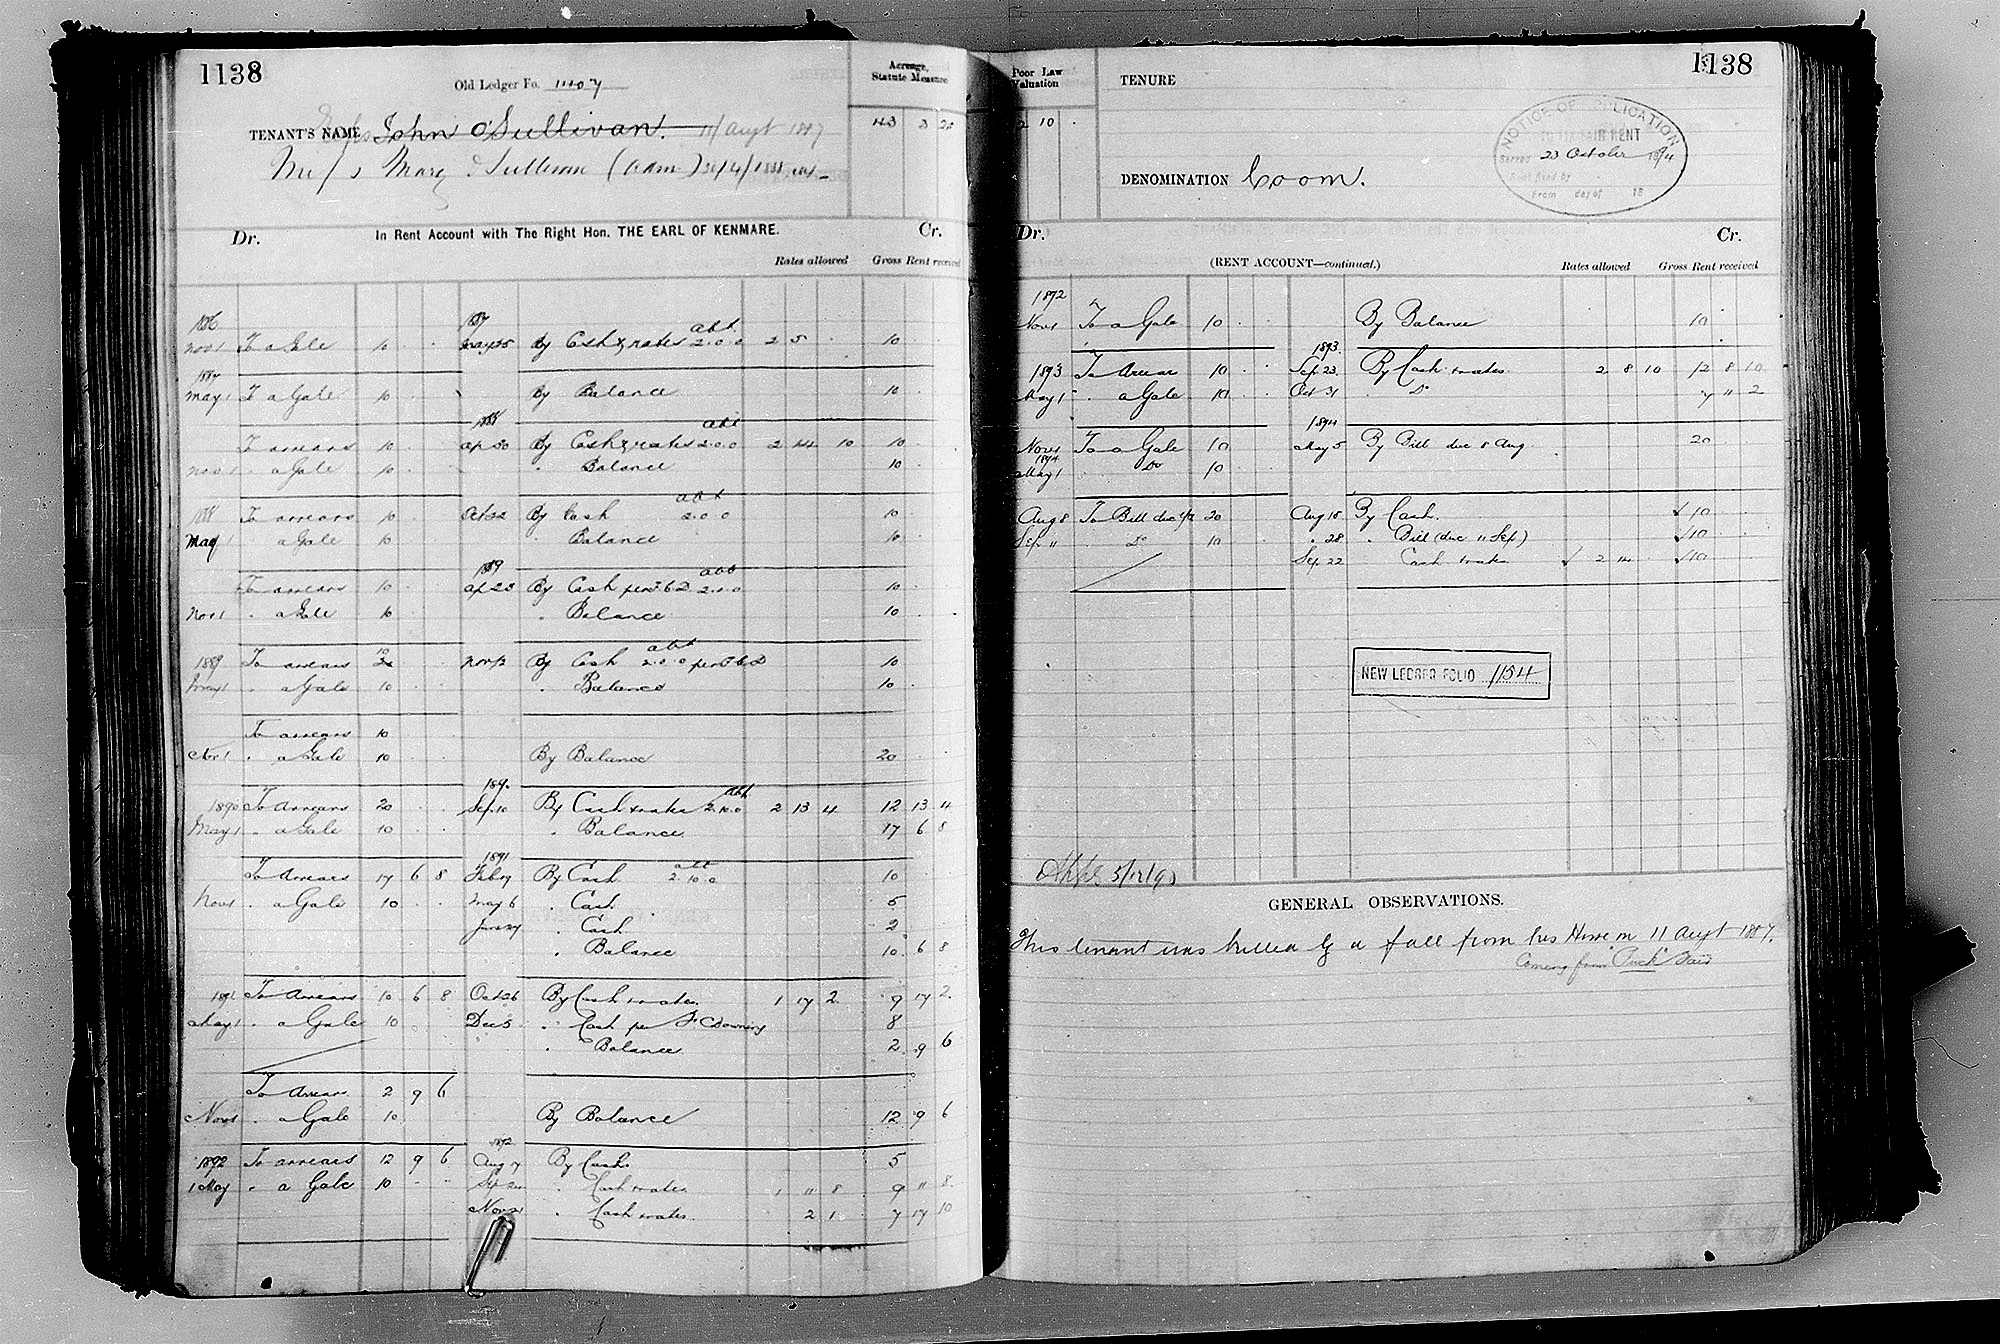 1138
Old Ledger Fo. 1107
Acreage, Statute Measure
TENANT'S NAME John O'Sullivan. 11/Augt 1887
Mrs Mary O'Sullivan (Adm) 1888
3 22
Dr. In Rent Account with The Right Hon. THE EARL OF KENMARE. Cr.
Rates allowed Gross Rent received
1886 1887 abt
Nov 1 To a Gale 10 May 25 By Cash & rates 2.0.0 2 5 10
1887
May 1 To a Gale 10 By Balance 10
1888 abt
To arrears 10 Ap 30 By Cash & rates 2.0.0 2 14 10 10
Nov 1 " a Gale 10 " Balance 10
1888 abt
To arrears 10 Oct 22 By Cash 2.0.0 10
May 1 a Gale 10 Balance 10
1889 abt
To arrears 10 Ap 23 By Cash per 2.0.0 10
Nov 1 " a Gale 10 " Balance 10
abt
1889 To arrears 10 Nov 12 By Cash 2.0.0 per 10
May 1 " a Gale 10 " Balance 10
To arrears 10
Nov 1 " a Gale 10 By Balance 20
1890 abt
1890 To Arrears 20 Sep 10 By Cash & rates 2.10.0 2 13 4 12 13 4
May 1 " a Gale 10 " Balance 17 6 8
1891 abt
To Arrears 17 6 8 Feb 17 By Cash 2.10.0 10
Nov 1 " a Gale 10 May 6 " Cash 5
June 24 " Cash 2
" Balance 10 6 8
1891 To Arrears 10 6 8 Oct 26 By Cash & rates 1 17 2 9 17 2
May 1 " a Gale 10 Dec 5 " Cash per Downing 8
" Balance 2 9 6
To Arrears 2 9 6
Nov 1 a Gale 10 By Balance 12 9 6
1892
1892 To arrears 12 9 6 Aug 7 By Cash 5
1 May " a Gale 10 Sep 24 " Cash & rates 1 11 8 9 11 8
Nov 21 " Cash & rates 2 1 7 17 10
1138
Poor Law Valuation
2 10
TENURE
NOTICE OF APPLICATION
TO FIX FAIR RENT
Served 23 October 1894
Rent fixed by
From day of 18
DENOMINATION Coom.
Dr. Cr.
(RENT ACCOUNT—continued.) Rates allowed Gross Rent received
1892
Nov 1 To a Gale 10 By Balance 10
1893
1893 To Arrear 10 Sep 23 By Cash & rates 2 8 10 12 8 10
May 1 " a Gale 10 Oct 31 " Do 7 11 2
1894
Nov 1 To a Gale 10 May 5 By Bill due 8 Aug 20
1894
May 1 Do 10
Aug 8 To Bill due 20 Aug 18 By Cash. 10
Sep 11 " Do 10 " 28 " Bill (due 11 Sep) 10
Sep 22 Cash & rates 2 14 10
NEW LEDGER FOLIO 1154
GENERAL OBSERVATIONS.
This tenant was killed by a fall from his Horse on 11 Augt 1887.
Coming from "Puck" Fair